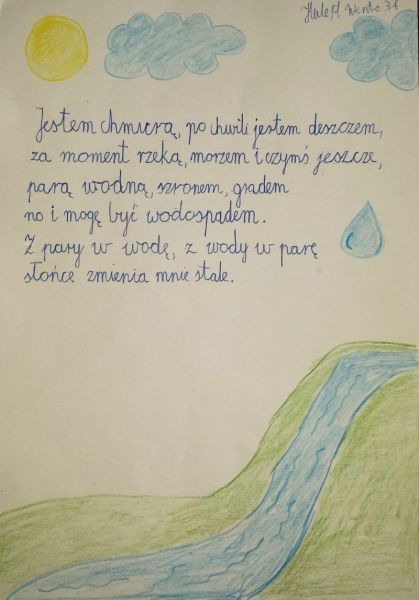 Jestem chmurą, po chwili jestem deszczem,
za moment rzeką, morzem i czymś jeszcze,
parą wodną, szronem, gradem
no i mogę być wodospadem.
Z pary w wodę, z wody w parę
słońce zmienia mnie stale.